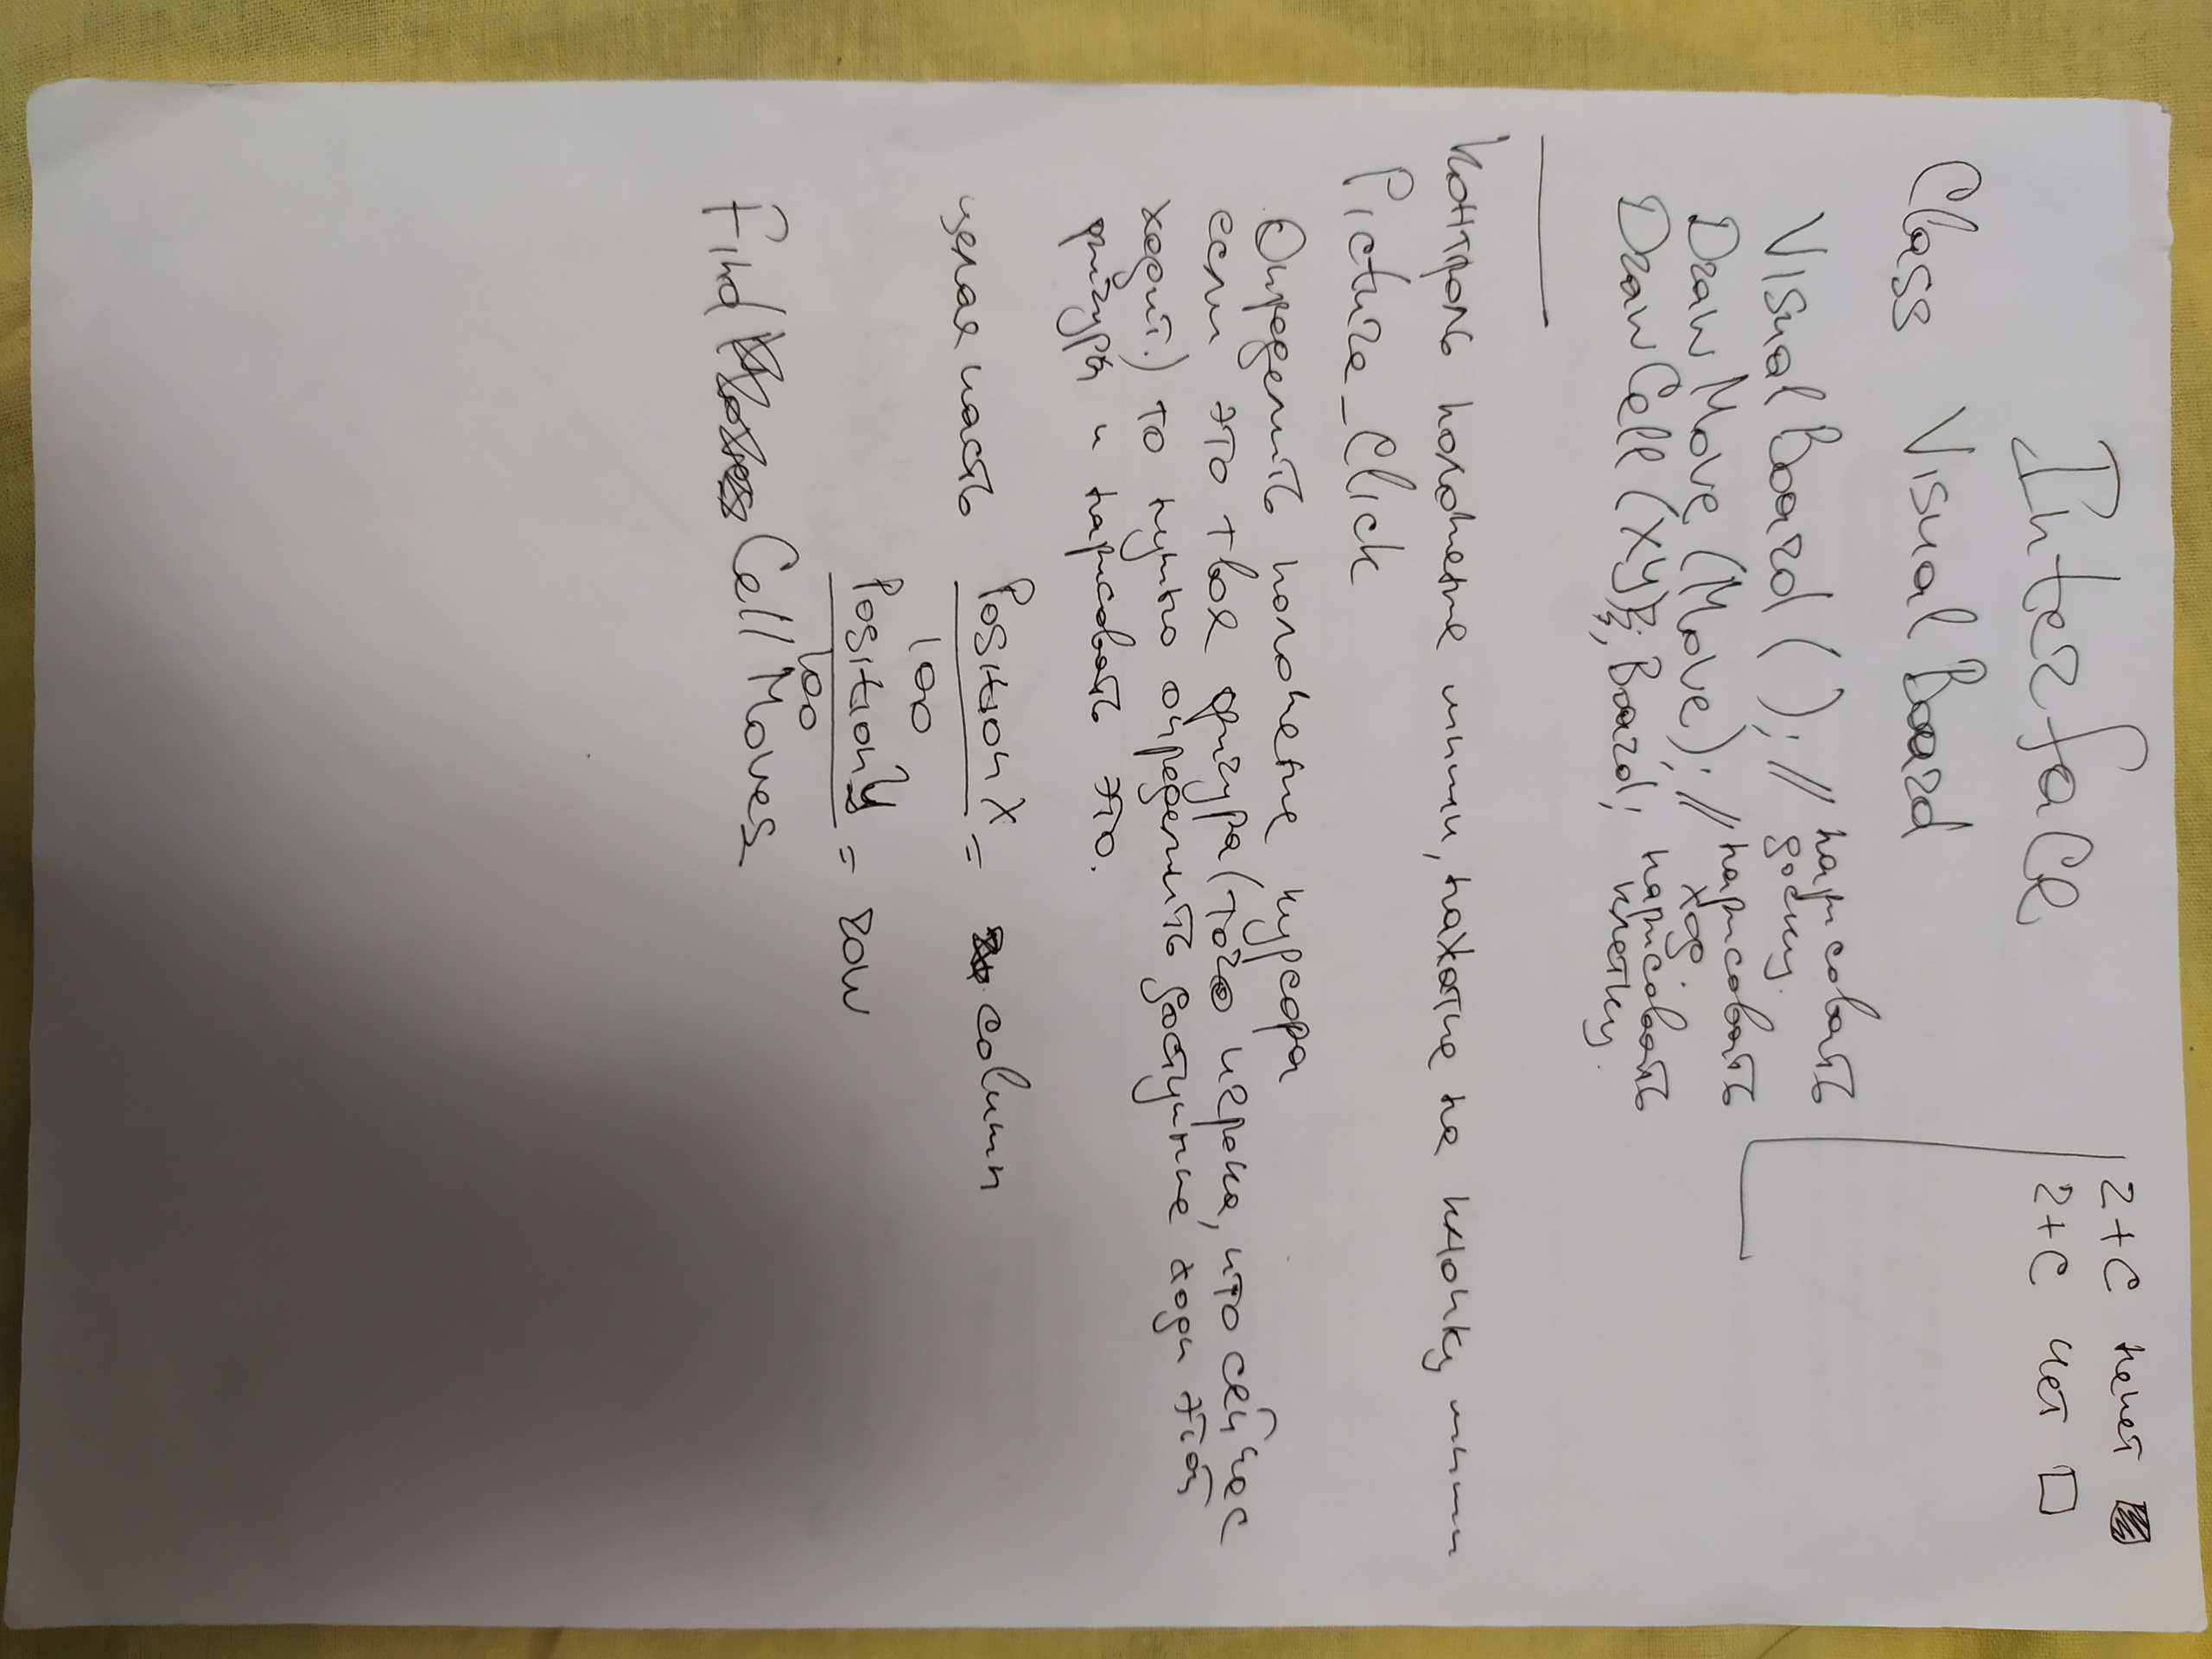 Interface
r+c нечет
r+c чет
Class Visual Board
Visual Board ( ); // нарисовать
доску.
Draw Move (Move); // нарисовать
ход.
Draw Cell (x,y); Board; нарисовать
клетку.
Контроль положение мыши, нажатие на кнопку мыши
Picture_Click
Определить положение курсора
если это твоя фигура (того игрока, что сейчас
ходит.) то нужно определить доступные ходы этой
фигуры и нарисовать это.
целая часть Position X = column
100
Position Y = row
100
Find Cell Moves